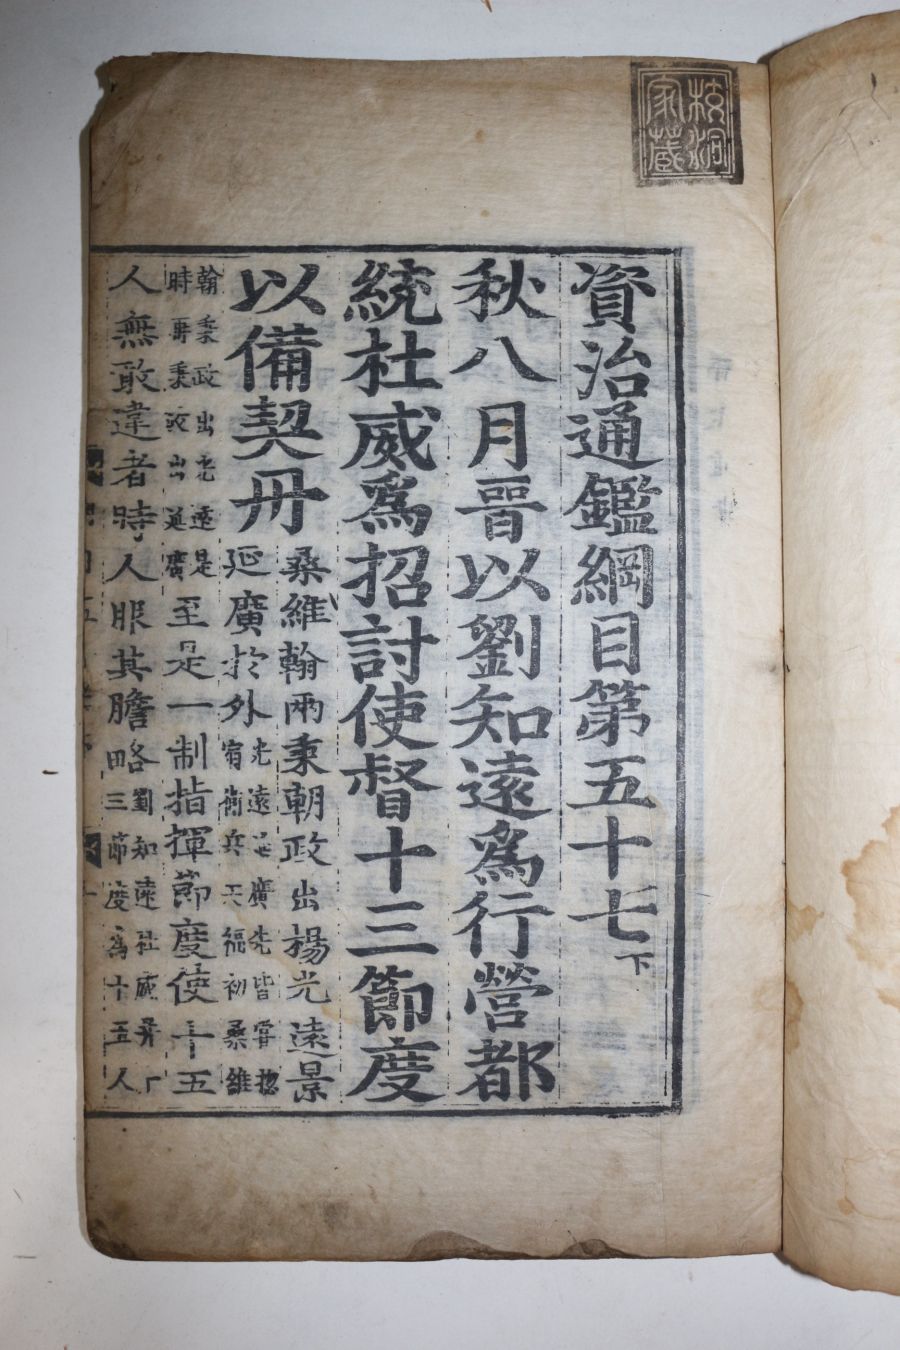 資治通鑑綱目第五十七下
秋八月晉以劉知遠爲行營都
統杜威爲招討使督十三節度
以備契丹
桑維翰兩秉朝政出楊光遠景
延廣於外
光遠延廣先皆嘗
宿衛兵天福初桑維
翰秉政出光遠是
時再秉政出延廣
至是一制指揮節度使十五
人無敢違者時人服其膽略
劉知遠杜威
三節度爲十五人
家藏